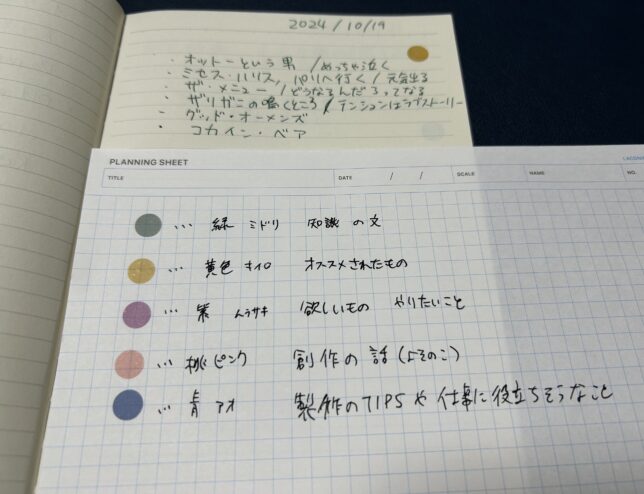 2024/10/19
・オットーという男 /めっちゃ泣く
・ミセス・ハリス、パリへ行く/元気出る
・ザ・メニュー/どうなるんだろってなる
・ザリガニの鳴くところ/テンションはラブストーリー
・グッド・オーメンズ
・コカイン・ベア
PLANNING SHEET
LACONIC
TITLE DATE / / SCALE NAME NO.
... 緑 ミドリ 知識の文
... 黄色 キイロ オススメされたもの
... 紫 ムラサキ 欲しいもの やりたいこと
... 桃 ピンク 創作の話(よそのこ)
... 青 アオ 製作のTIPSや仕事に役立ちそうなこと